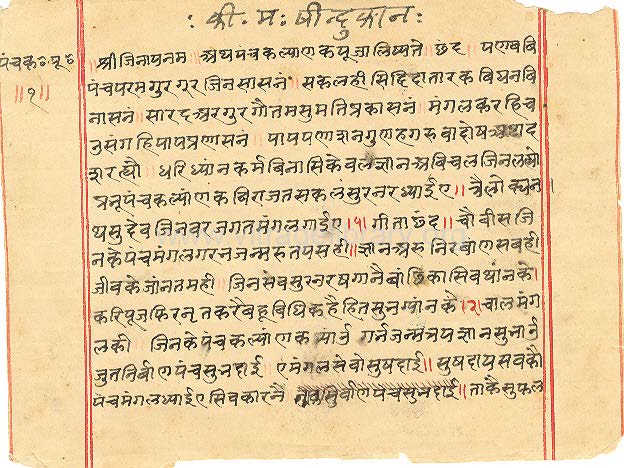 : की : म : षीन्दु कान :
पंचक॰पू॰
॥१॥
श्री जिनायनम ॥ अथ पंचकल्याणक पूजा लिष्यते ॥ छंद ॥ पणववि
पंच परम गुर गुर जिन सासनं ॥ सकल ही सिद्दि दातार क विघनवि
नासनं ॥ सारद अर गुर गौतम सुमति प्रकासनं ॥ मंगल कर हि च
उ संग हि पाप प्रणासनं ॥ पाप पणाशन गुण ह गरुवा दोष
॥ धरि ध्यांन कर्म बिनासि केवल ज्ञान अविचल जिन लह्यो
पंच कल्यांणक बिराजत सकल सुरनर ध्याईए ॥ त्रैलोक्य न
थ सु देव जिनवर जगत मंगल गाईए ॥१॥ गीता छंद ॥ चौवीस जि
न के पंच मंगल गरभ जन्म रु तप सही ॥ ज्ञान अरु निरबांण सब ही
जीव के जांनत मही ॥ जिन सेव सुर नर षग गनै बांछिका सिव थांन को
करि पूज फिर नृत करै बहु विधि कहै हित सुन ग्यांन कै ॥२॥ चाल मंग
ल की ॥ जिन के पंच कल्यांणक गर्भ जन्म तप ज्ञान सुनाउं
जुत निर्वाण पंच सुनदाई ॥ ए मंगल सेवो सुषदाई ॥ सुषदाय सब कौ
पंच मंगल ध्याईए सिव कारनै ॥ ताकै सुफल